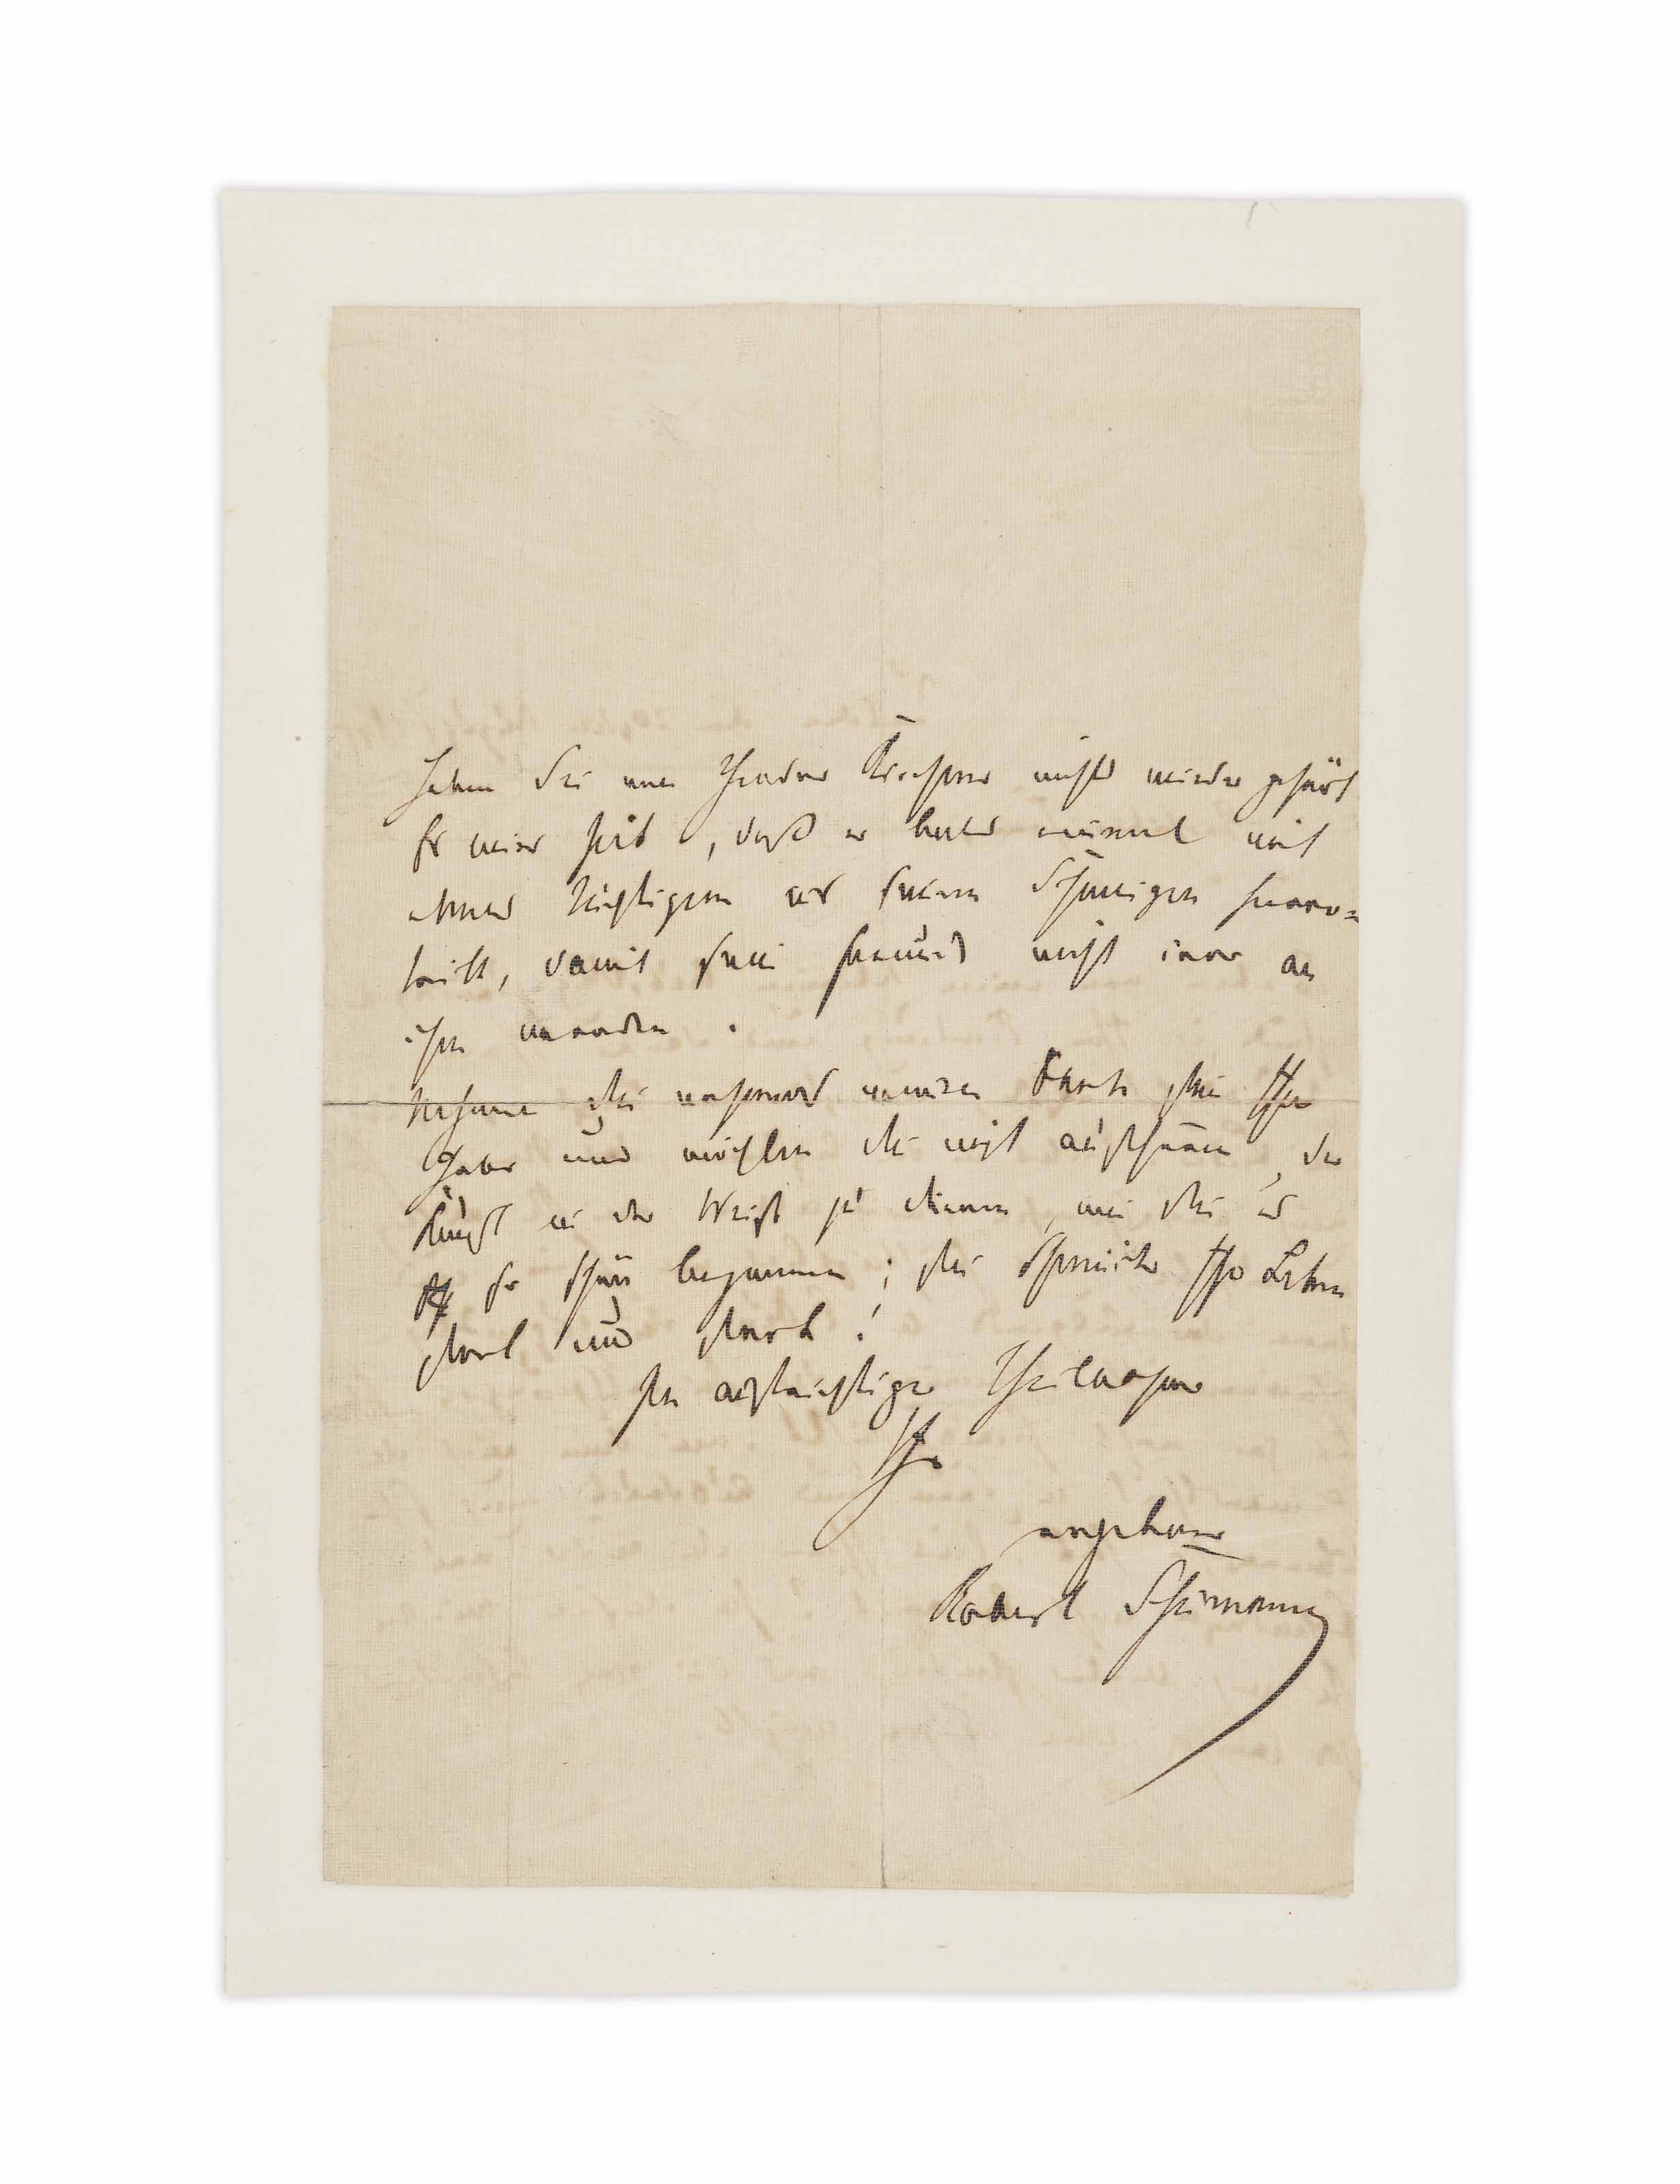 Haben Sie von Theodor Kirchner nichts wieder gehört
Es wäre Zeit, daß er bald einmal mit
etwas Tüchtigem aus seinem Schweigen hervor=
tritt, damit seine Freunde nicht irre an
ihm werden.
Nehmen Sie nochmals meinen Dank für Ihre
Gabe und möchten Sie nicht aufhören, der
Kunst in der Weise zu dienen, wie Sie es
so schön begonnen; Sie schmückt Ihr Leben
fort und fort!
In aufrichtiger Theilnahme
Ihr
ergebener
Robert Schumann